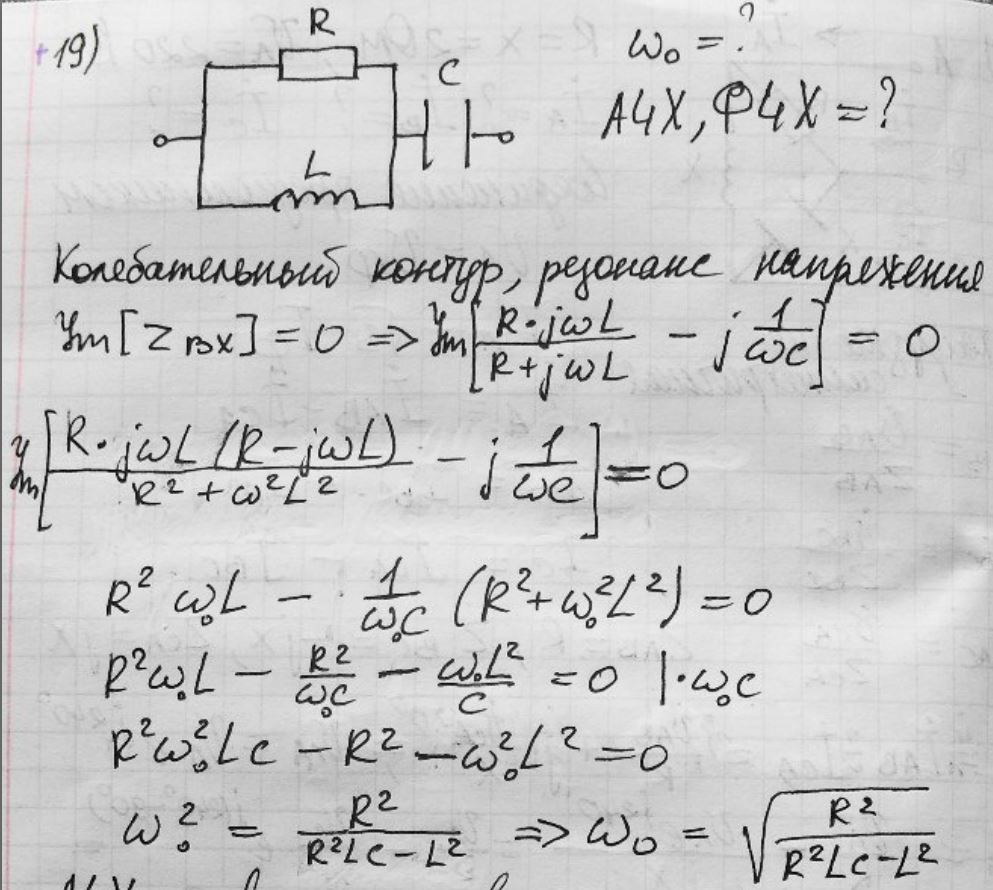 +19)
R
C
L
ω₀ = ?
АЧХ, ФЧХ = ?
Колебательный контур, резонанс напряжения
Jm[Z вх] = 0 => Jm[R·jωL / R+jωL − j 1/ωC] = 0
Jm[R·jωL (R−jωL) / R² + ω²L² − j 1/ωC] = 0
R² ω₀L − 1/ω₀C (R²+ω₀²L²) = 0
R²ω₀L − R²/ω₀C − ω₀L²/C = 0 |·ω₀C
R²ω₀²LC − R² − ω₀²L² = 0
ω₀² = R² / R²LC − L² => ω₀ = √(R² / R²LC − L²)